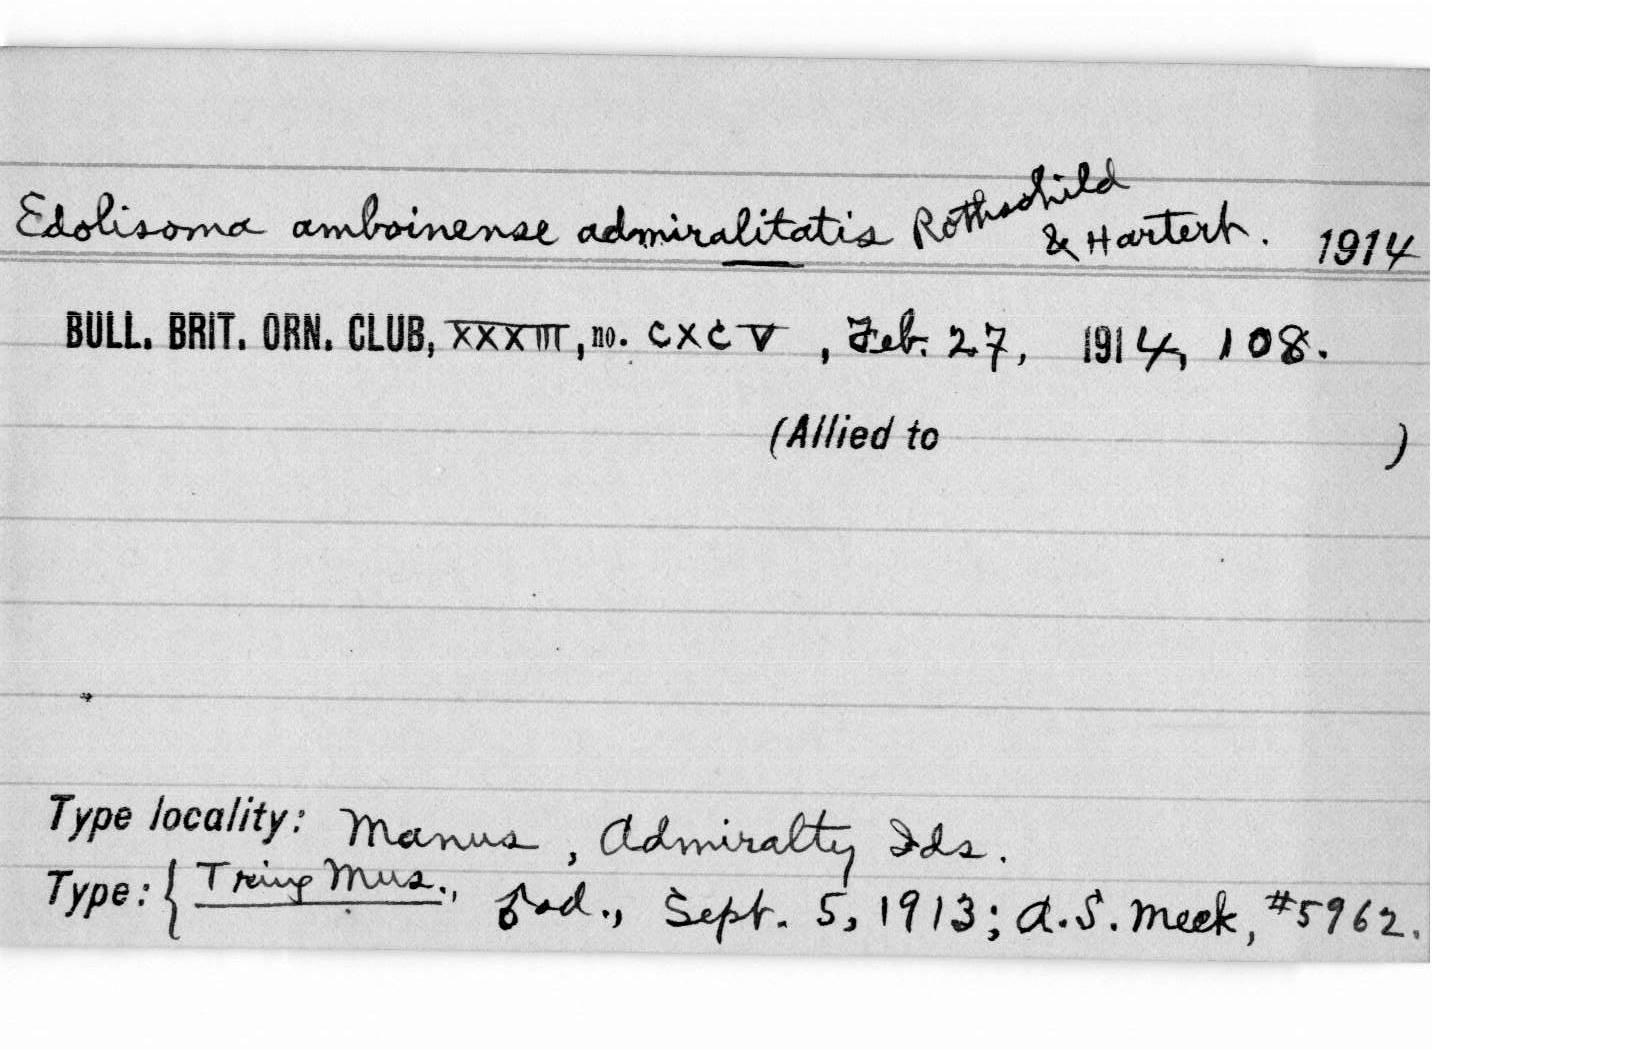 Edolisoma amboinense admiralitatis Rothschild & Hartert. 1914
BULL. BRIT. ORN. CLUB, XXXIII, no. CXCV, Feb. 27, 1914, 108.
(Allied to )
Type locality: Manus, Admiralty Ids.
Type: { Tring Mus., ad., Sept. 5, 1913; A.S. Meek, #5962.